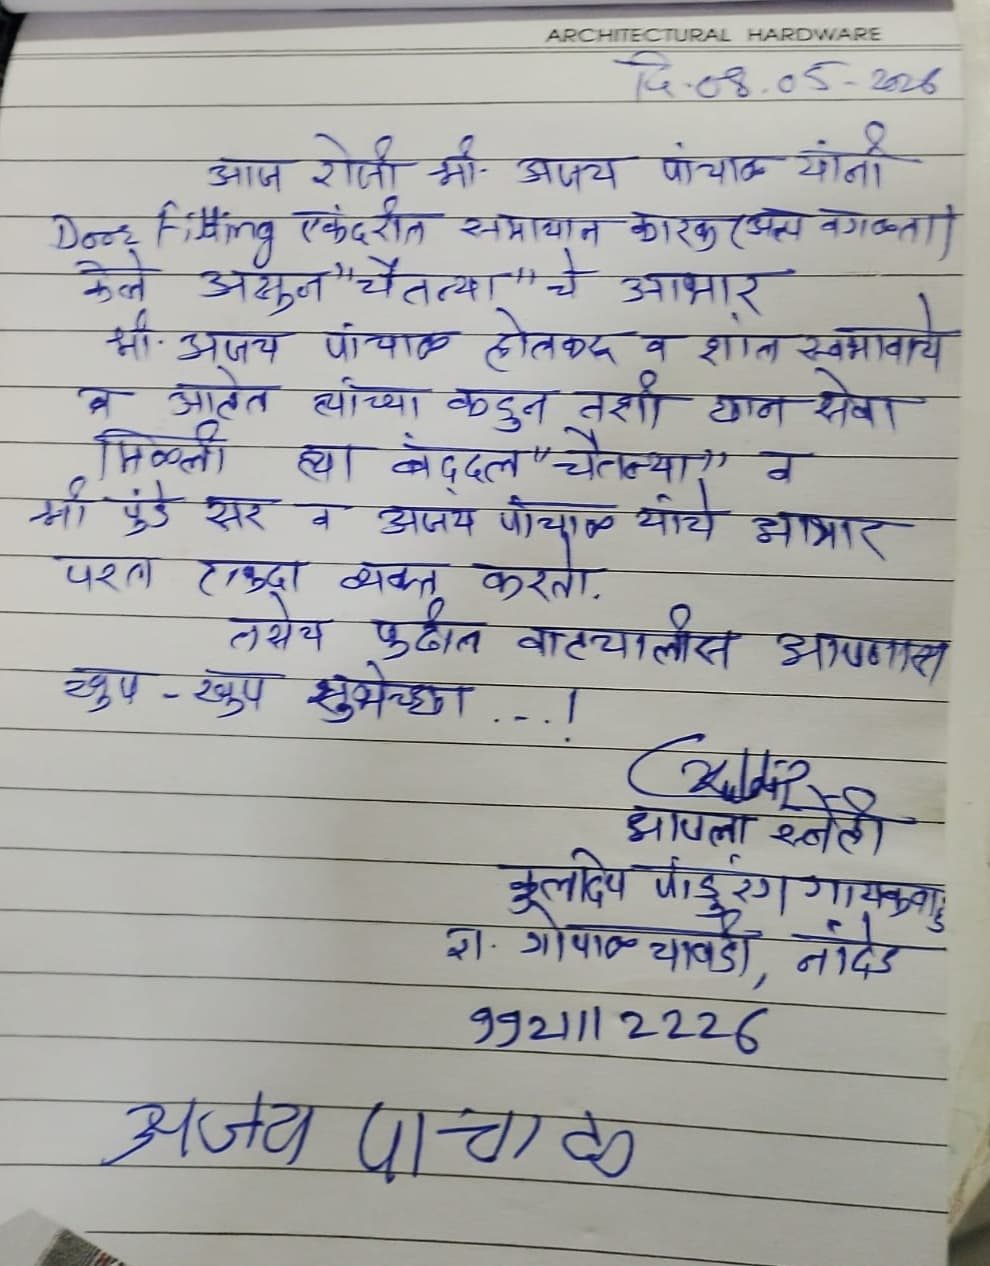 ARCHITECTURAL HARDWARE
दि.08.05-2026
आज रोजी श्री. अजय पांचाळ यांनी
Door Fitting एकंदरीत समाधान कारक (अल्प वगळता)
केले असुन "चैतन्या" चे आभार
श्री. अजय पांचाळ होतकरू व शांत स्वभावाचे
व आहेत त्यांच्या कडुन तशी छान सेवा
मिळली त्या बद्दल "चैतन्या" व
श्री पुंडे सर व अजय पांचाळ यांचे आभार
परत एकदा व्यक्त करतो.
तसेच पुढील वाटचालीस आपणास
खुप - खुप शुभेच्छा ...!
आपला स्नेही
कुलदिप पांडुरंग गायकवाड
रा. गोपाळ चावडी, नांदेड
9921112226
अजय पांचाळ